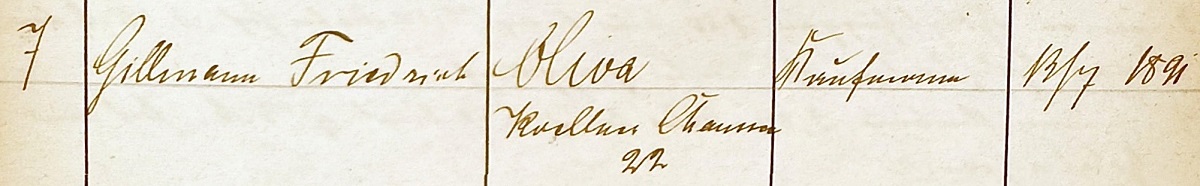 7 Gillmann Friedrich Oliva Kaufmann 13/7 1891
Koellner Chaussee
22